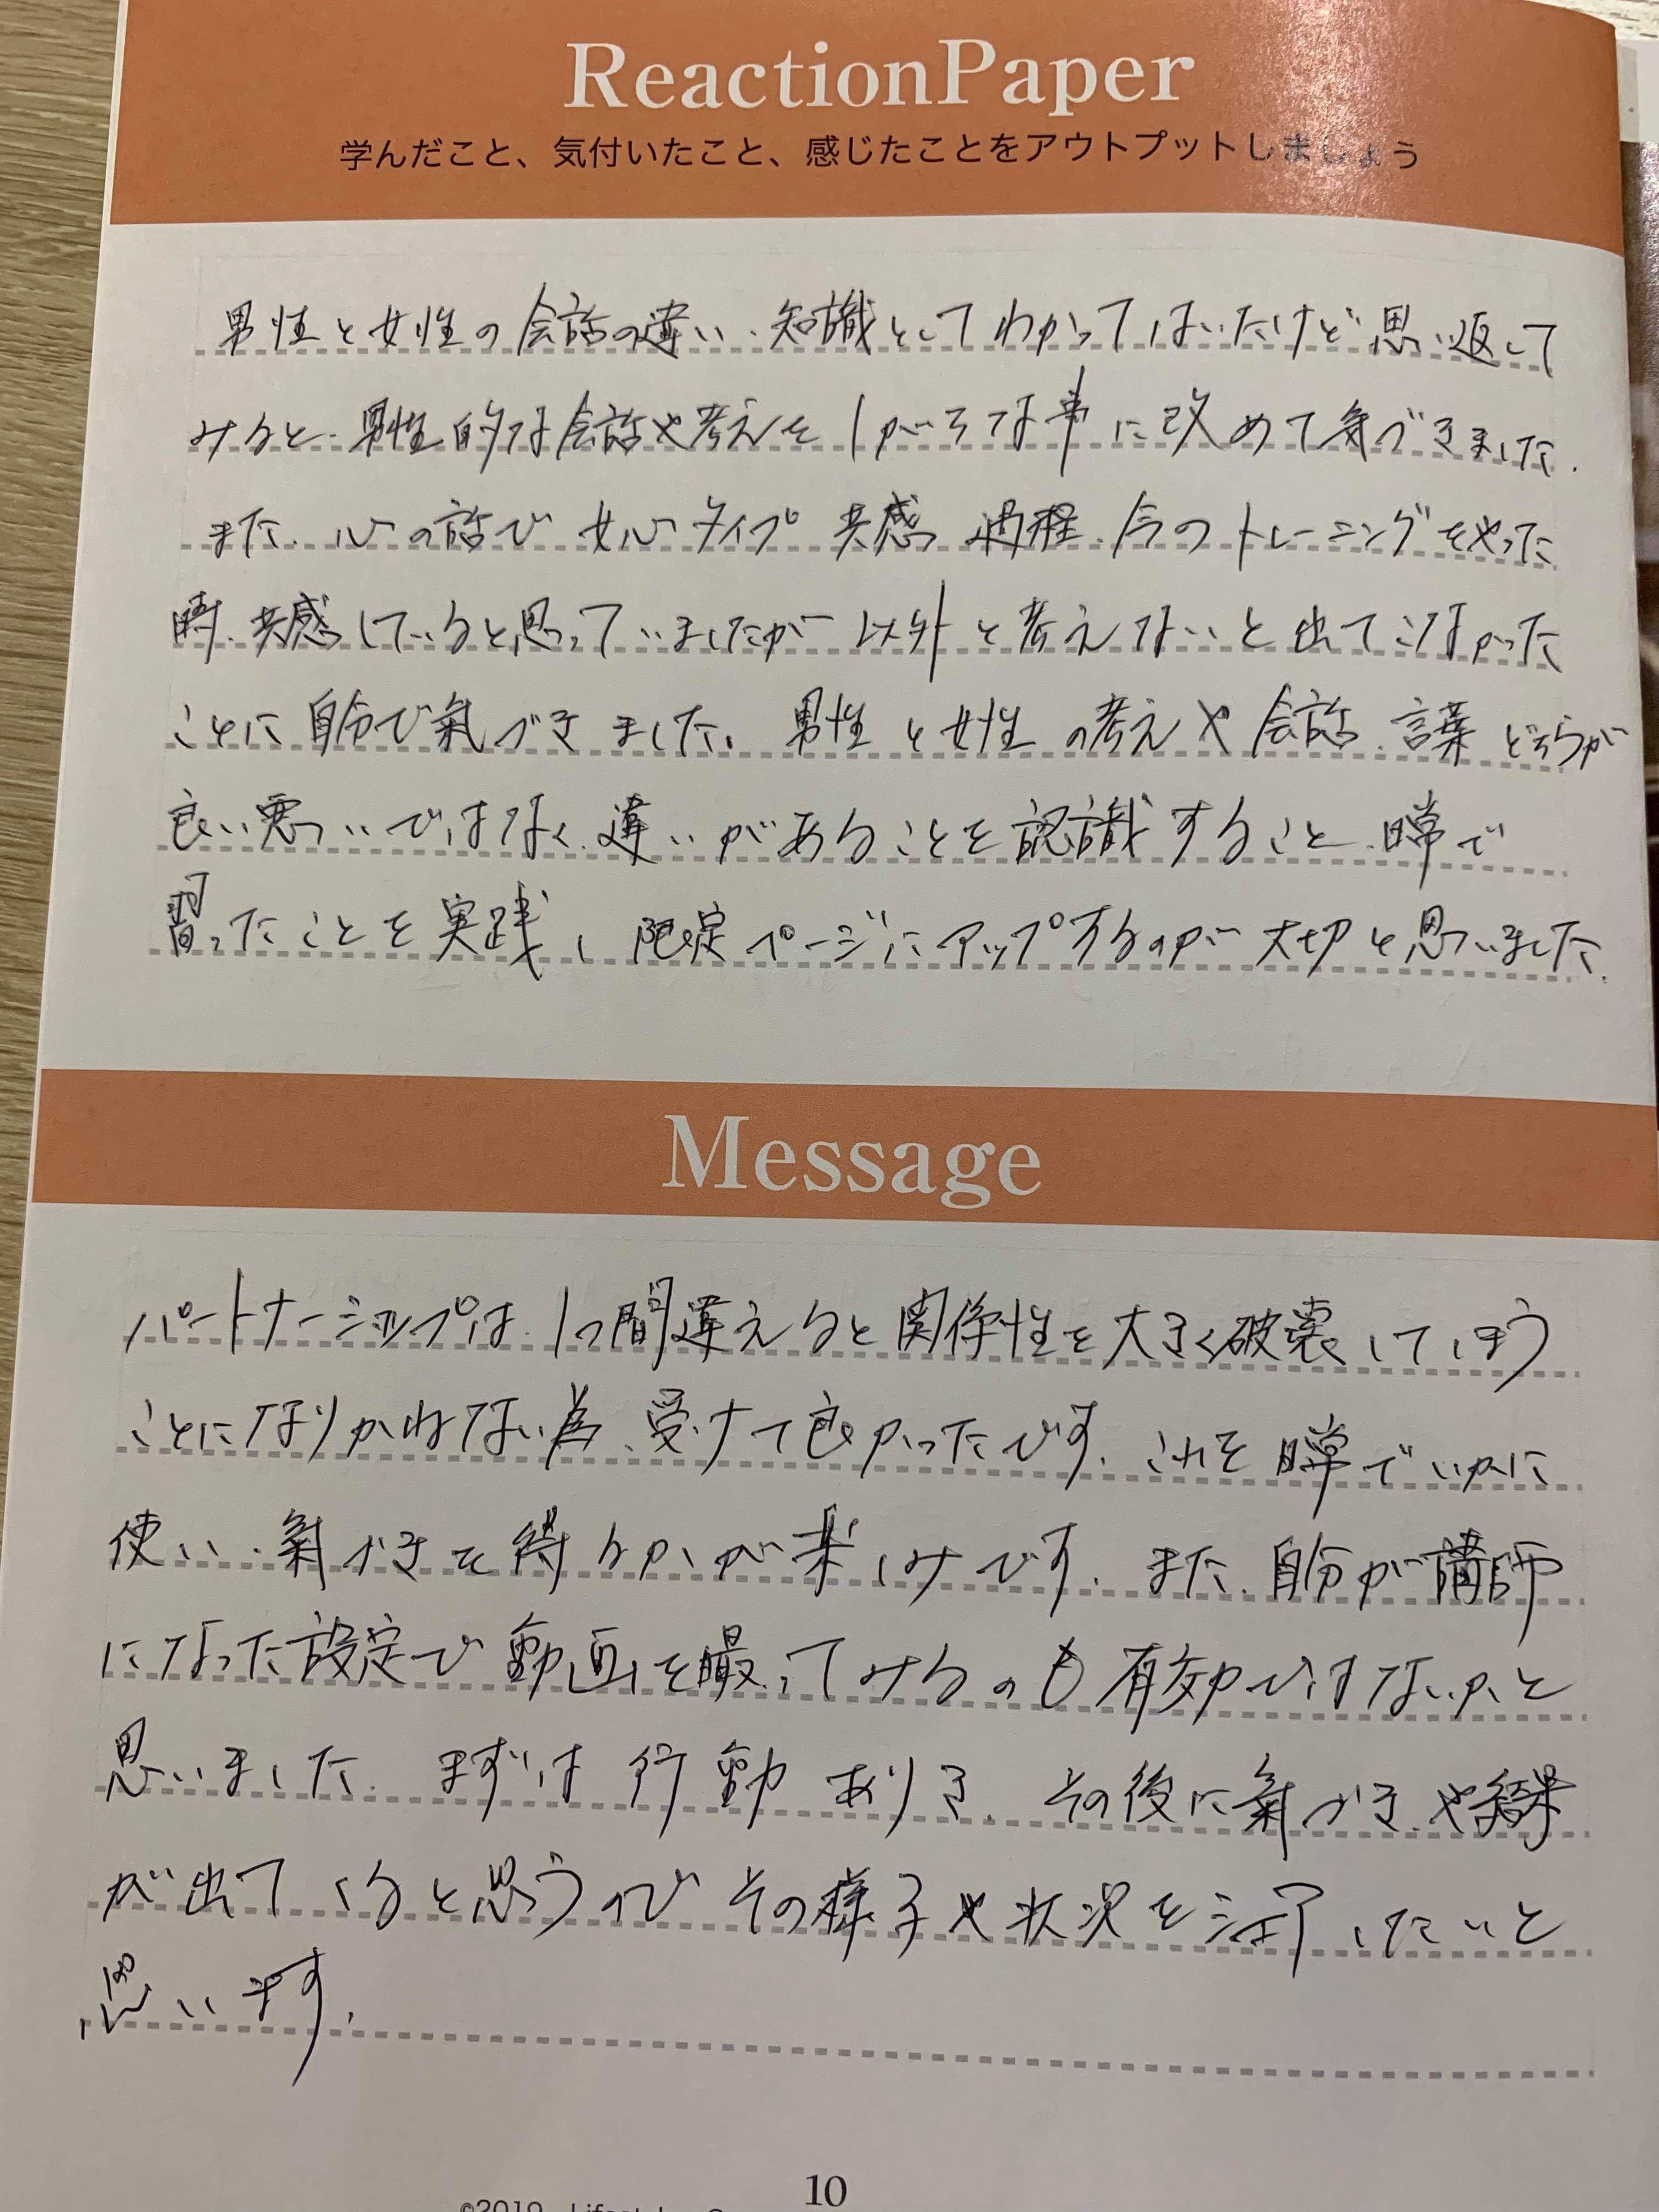 ReactionPaper
学んだこと、気付いたこと、感じたことをアウトプットしましょう
男性と女性の会話の違い、知識としてわかってはいたけど思い返して
みると、男性的な会話や考えをしがちな事に改めて気づきました。
また、心の話で 女心タイプ 共感 過程、今のトレーニングをやった
時、共感していると思っていましたが 以外と考えないと出てこなかった
ことに自分で氣づきました。男性と女性の考えや会話、言葉どちらが
良い悪いではなく、違いがあることを認識すること、日常で
習ったことを実践し限定ページにアップするのが大切と思いました。
Message
パートナーシップは、1つ間違えると関係性を大きく破壊してしまう
ことになりかねない為、受けて良かったです。これを日常でいかに
使い、氣づきを得るかが楽しみです。また、自分が講師
になった設定で動画を撮ってみるのも有効ではないかと
思いました。まずは行動ありき、その後に氣づきや結果
が出てくると思うのでその様子や状況をシェアしたいと
思います。
10